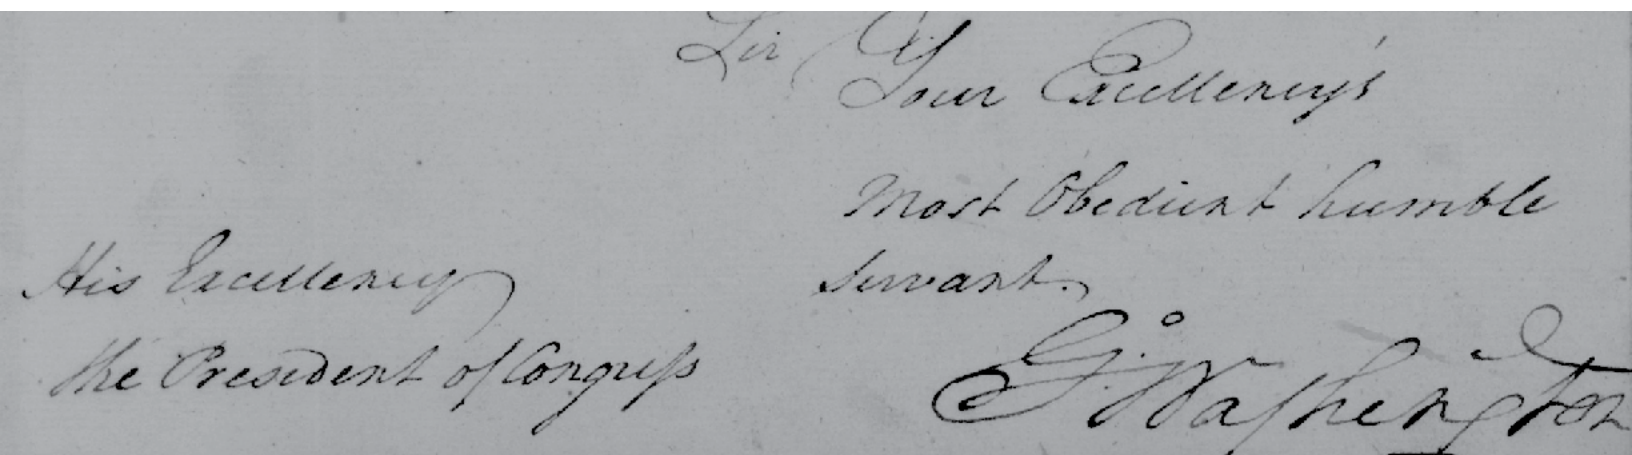 Sir
Your Excellency's
Most Obedient humble
servant.
His Excellency
the President of Congress
G:º Washington